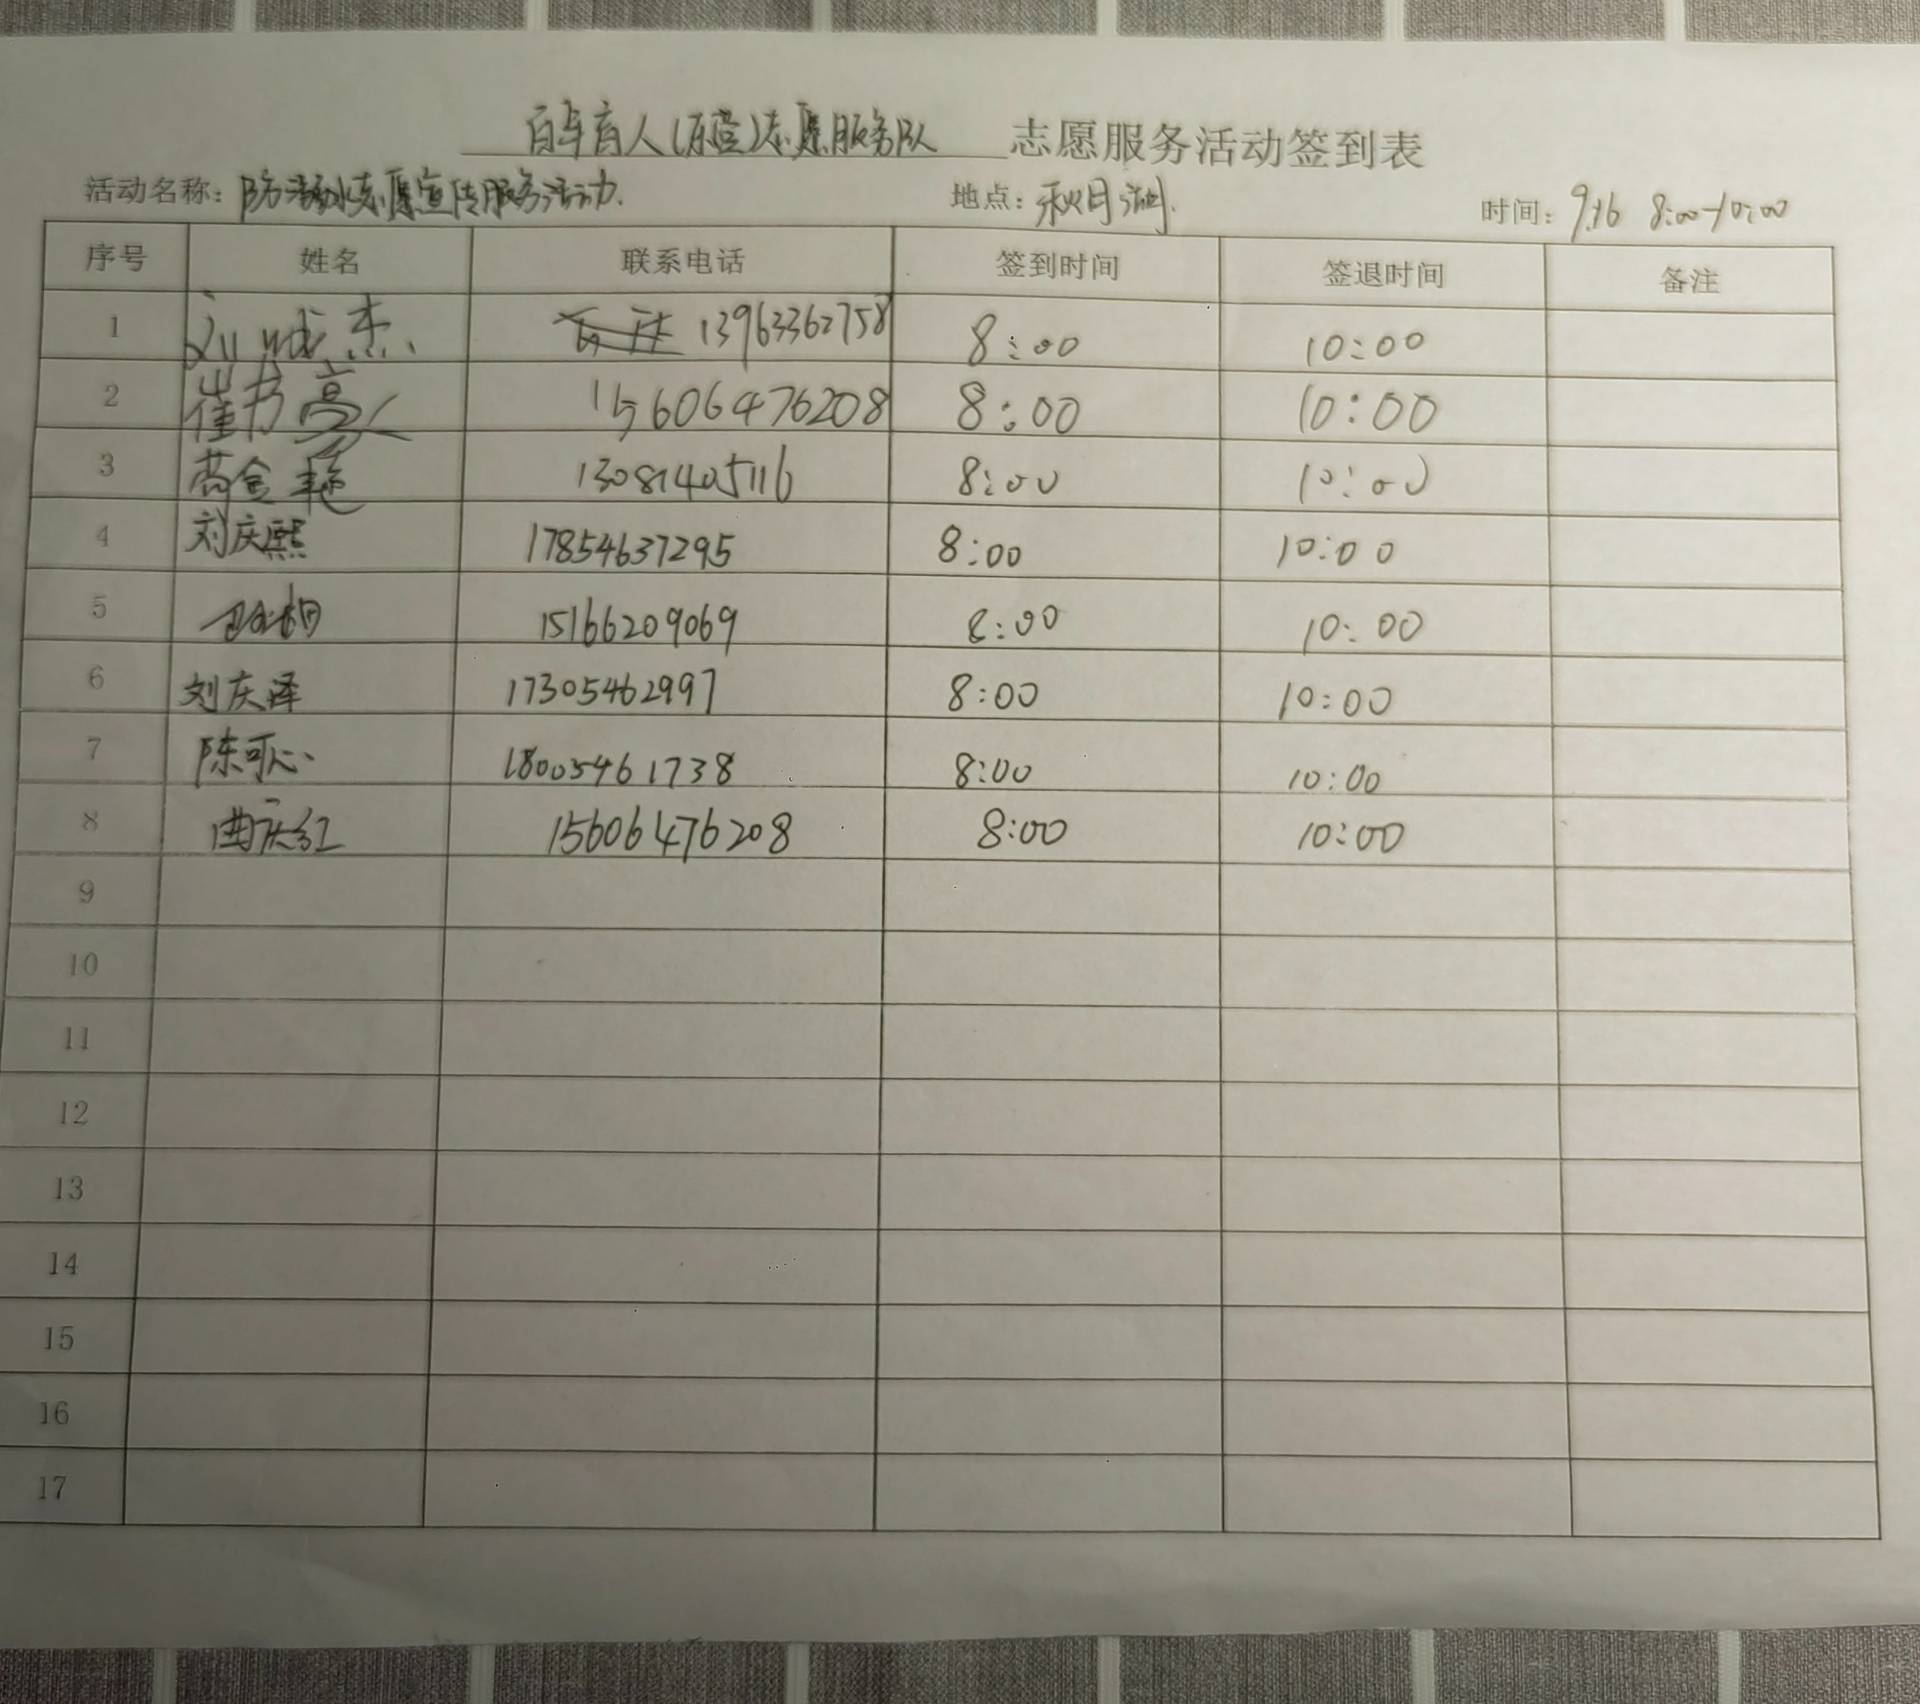 百年育人(东营)志愿服务队 志愿服务活动签到表
活动名称: 防溺水志愿宣传服务活动. 地点: 秋月湖. 时间: 9.16 8:00-10:00
序号 姓名 联系电话 签到时间 签退时间 备注
1 刘城杰 13963362758 8:00 10:00
2 崔书豪 15606476208 8:00 10:00
3 高金 13081405116 8:00 10:00
4 刘庆熙 17854637295 8:00 10:00
5 15166209069 8:00 10:00
6 刘庆泽 17305462997 8:00 10:00
7 陈可心 18005461738 8:00 10:00
8 曲庆红 15606476208 8:00 10:00
9
10
11
12
13
14
15
16
17